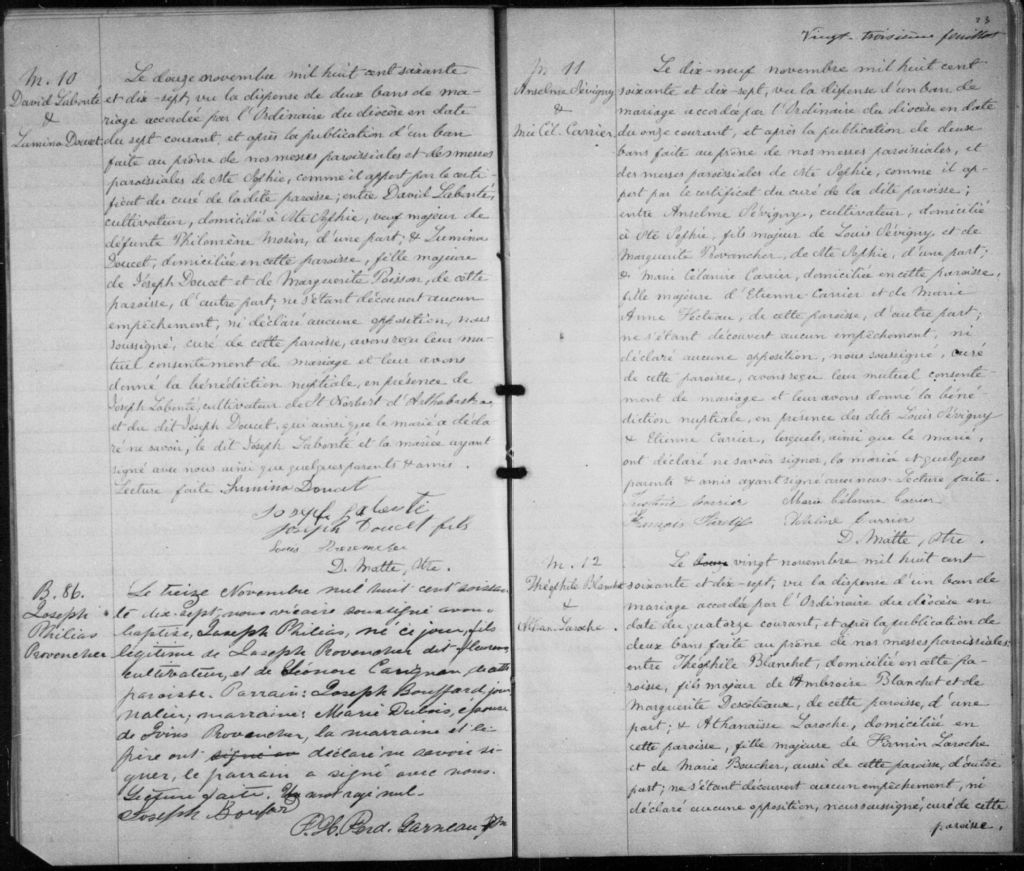 M. 10
David Labonté
&
Lumina Doucet
Le douze novembre mil huit cent soixante
et dix-sept, vu la dispense de deux bans de ma-
riage accordée par l'Ordinaire du diocèse en date
du sept courant, et après la publication d'un ban
faite au prône de nos messes paroissiales et des messes
paroissiales de Ste Sophie, comme il appert par le certi-
ficat du curé de la dite paroisse; entre David Labonté,
cultivateur, domicilié à Ste Sophie, veuf majeur de
défunte Philomène Morin, d'une part; & Lumina
Doucet, domiciliée en cette paroisse, fille majeure
de Joseph Doucet et de Marguerite Poisson, de cette
paroisse, d'autre part; ne s'étant découvert aucun
empêchement, ni déclaré aucune opposition, nous
soussigné, curé de cette paroisse, avons reçu leur mu-
tuel consentement de mariage et leur avons
donné la bénédiction nuptiale, en présence de
Joseph Labonté, cultivateur de St Norbert d'Arthabaska
et du dit Joseph Doucet, qui ainsi que le marié a décla
ré ne savoir, le dit Joseph Labonté et la mariée ayant
signé avec nous ainsi que quelques parents & amis.
Lecture faite. Lumina Doucet
Joseph Labonté
Joseph Doucet fils
Louis
D. Matte, Ptre.
B. 86.
Joseph
Philias
Provencher
Le treize Novembre mil huit cent soixan
te dix-sept, nous vicaire soussigné avons
baptisé, Joseph Philias, né ce jour, fils
légitime de Joseph Provencher dit
cultivateur, et de Eléonore Carignan de cette
paroisse. Parrain: Joseph Bouffard, jour
nalier; marraine: Marie Dubois, épouse
de Provencher, la marraine et le
père ont signé déclaré ne savoir si-
gner, le parrain a signé avec nous.
Lecture faite. Un mot rayé nul.
Joseph Boufar
P.H. Ferd. Garneau, Ptre
23
Vingt-troisième feuillet
M. 11
Anselme Pévigny
&
Mie Cél. Carrier
Le dix-neuf novembre mil huit cent
soixante et dix-sept, vu la dispense d'un ban de
mariage accordée par l'Ordinaire du diocèse en date
du onze courant, et après la publication de deux
bans faite au prône de nos messes paroissiales, et
des messes paroissiales de Ste Sophie, comme il ap-
pert par le certificat du curé de la dite paroisse;
entre Anselme Pévigny, cultivateur, domicilié
à Ste Sophie, fils majeur de Louis Pévigny et de
Marguerite Provancher, de Ste Sophie, d'une part;
& Marie Célanire Carrier, domiciliée en cette paroisse,
fille majeure d'Etienne Carrier et de Marie
Anne Fecteau, de cette paroisse, d'autre part;
ne s'étant découvert aucun empêchement, ni
déclaré aucune opposition, nous soussigné, curé
de cette paroisse, avons reçu leur mutuel consente-
ment de mariage et leur avons donné la béné-
diction nuptiale, en présence des dits Louis Pévigny
& Etienne Carrier, lesquels, ainsi que le marié,
ont déclaré ne savoir signer, la mariée et quelques
parents & amis ayant signé avec nous. Lecture faite.
Carrier Marie Célanire Carrier
François Carrier
D. Matte, Ptre.
M. 12
Théophile Blanchet
&
Athan. Laroche.
Le vingt novembre mil huit cent
soixante et dix-sept, vu la dispense d'un ban de
mariage accordée par l'Ordinaire du diocèse en
date du quatorze courant, et après la publication de
deux bans faite au prône de nos messes paroissiales;
entre Théophile Blanchet, domicilié en cette pa-
roisse, fils majeur de Ambroise Blanchet et de
Marguerite Descoteaux, de cette paroisse, d'une
part; & Athanaïsse Laroche, domiciliée en
cette paroisse, fille majeure de Firmin Laroche
et de Marie Boucher, aussi de cette paroisse, d'autre
part; ne s'étant découvert aucun empêchement, ni
déclaré aucune opposition, nous soussigné, curé de cette
paroisse,